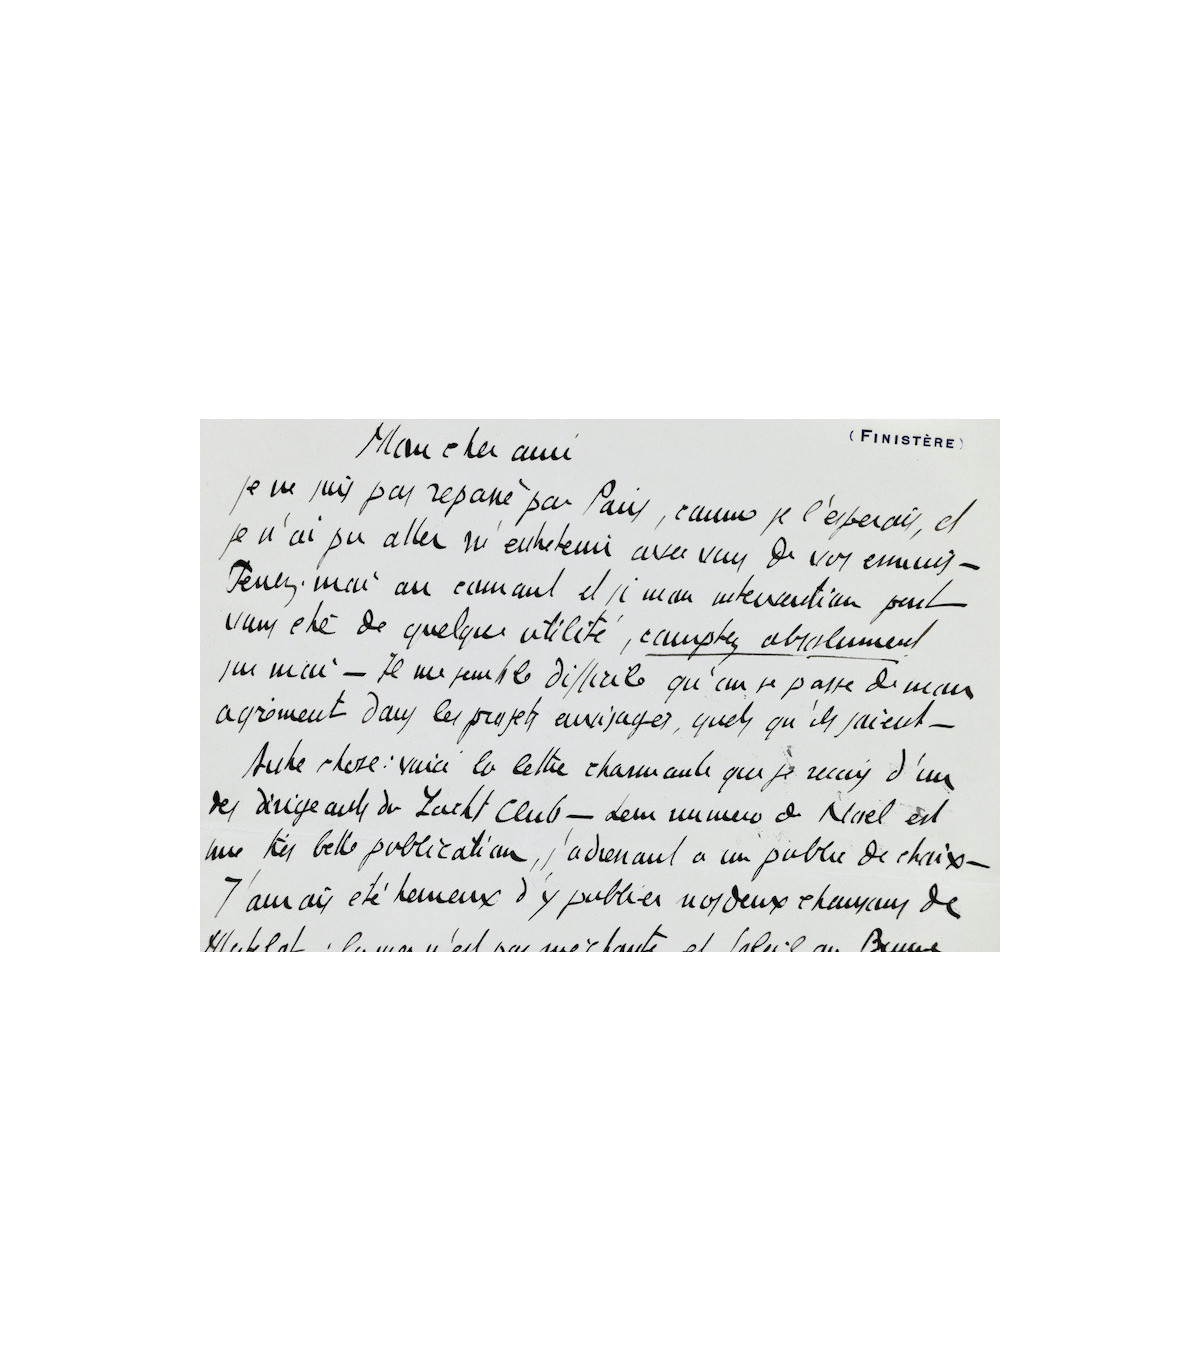 (FINISTÈRE)
Mon cher ami
je ne suis pas repassé par Paris, comme je l'espérais, et
je n'ai pu aller m'entretenir avec vous de vos ennuis –
Tenez-moi au courant et si mon intervention peut
vous être de quelque utilité, comptez absolument
sur moi – Il me semble difficile qu'on se passe de mon
agrément dans les projets envisagés, quels qu'ils soient –
Autre chose : voici la lettre charmante que je reçois d'un
des dirigeants du Yacht Club – Leur numero de Noel est
une très belle publication, s'adressant a un public de choix –
J'aurais été heureux d'y publier nos deux chansons de
Matelot : la mer n'est pas méchante et Soleil en